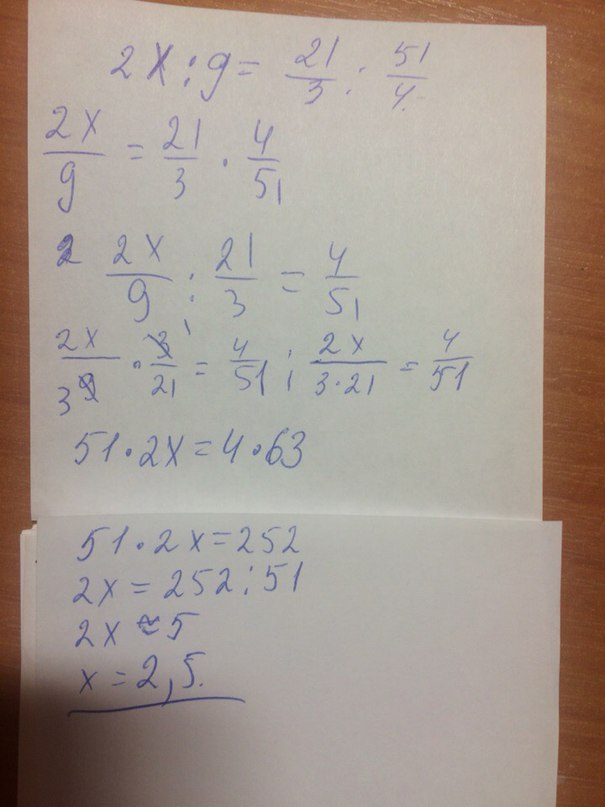 2x:9= 21/3 : 51/4
2x/9 = 21/3 · 4/51
2 2x/9 : 21/3 = 4/51
2x/3 9 · 3/21 1 = 4/51 ; 2x/3·21 = 4/51
51·2x=4·63
51·2x=252
2x=252:51
2x≈5
x=2,5.